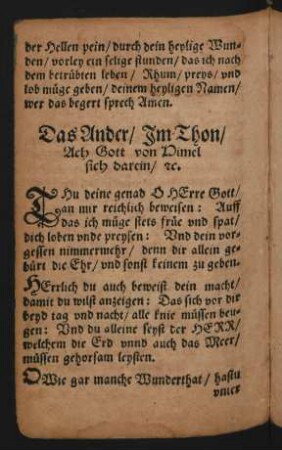 der Hellen pein / durch dein heylige Wun-
den / vorley ein selige stunden / das ich nach
dem betrübten leben / Rhum / preys / vnd
lob müge geben / deinem heyligen Namen /
wer das begert sprech Amen.
Das Ander / Im Thon /
Ach Gott von Himel
sich darein / ꝛc.
THu deine genad O HErre Gott /
an mir reichlich beweisen: Auff
das ich müge stets früe vnd spat /
dich loben vnde preysen: Vnd dein vor-
gessen nimmermehr / denn dir allein ge-
bürt die Ehr / vnd sonst keinem zu geben.
HErrlich du auch beweist dein macht /
damit du wilst anzeigen: Das sich vor dir
beyd tag vnd nacht / alle knie müssen beu-
gen: Vnd du alleine seyst der HERR /
welchem die Erd vnnd auch das Meer /
müssen gehorsam leysten.
O Wie gar manche Wunderthat / hastu
vnter